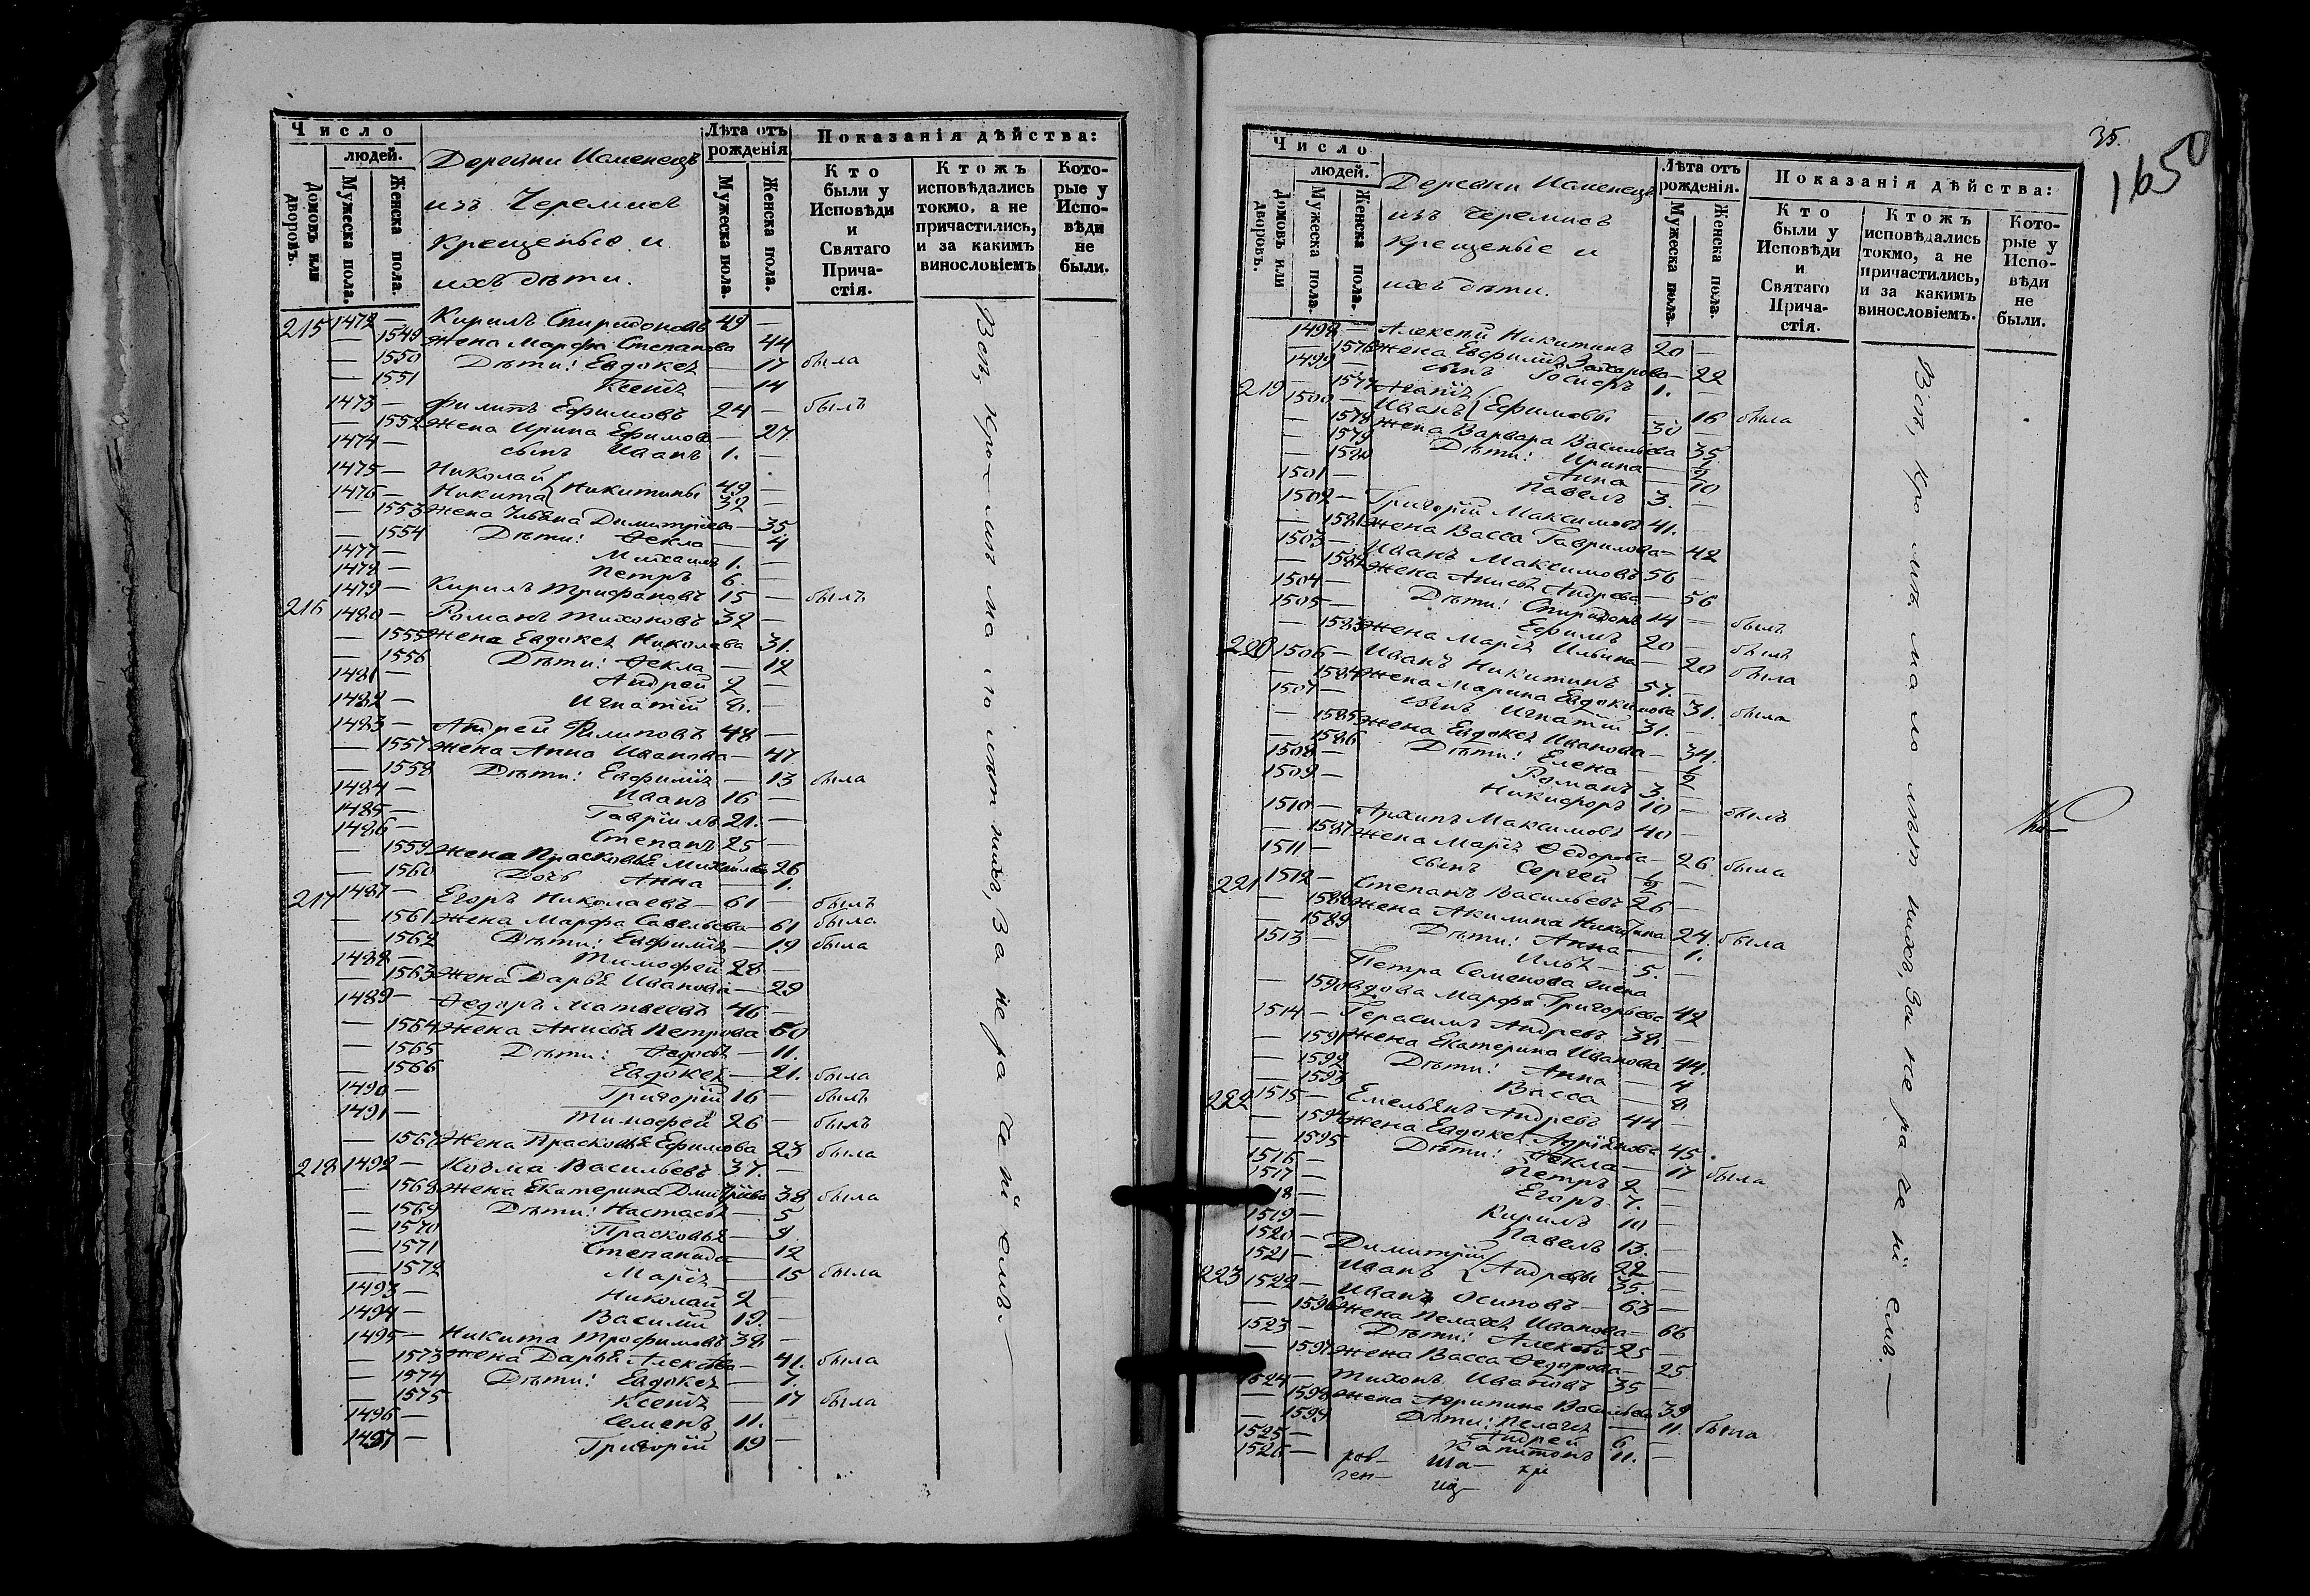 Число
людей.
Домовъ или дворовъ.
Мужеска пола.
Женска пола.
Деревни Изменецъ
изъ Черемисъ
крещеные и
ихъ дѣти.
Лѣта отъ рожденія
Мужеска пола.
Женска пола.
Показанія дѣйства:
Кто были у Исповѣди и Святаго Причастія.
Ктожъ исповѣдались токмо, а не причастились, и за какимъ винословіемъ
Которые у Исповѣди не были.
215 1472 — Кирилъ Спиридоновъ 49 —
— 1549 Жена Марфа Степанова 44
— 1550 Дѣти: Евдокея — 17 была
— 1551 Ксенія — 14
1473 — Филипъ Ефимовъ 24 — былъ
— 1552 Жена Ирина Ефимова — 27.
1474 — сынъ Иванъ 1. —
1475 — Николай
1476 — Никита } Никитины 49 — 32 —
— 1553 Жена Ульяна Димитріева — 35
— 1554 Дѣти: Ѳекла — 4
1477 — Михаилъ 1. —
1478 — Петръ 6. —
1479 — Кирилъ Трифановъ 15 — былъ
216 1480 — Романъ Тихоновъ 32 —
— 1555 Жена Евдокея Николаева 31.
— 1556 Дѣти: Ѳекла — 12
1481 — Андрей 2 —
1482 — Игнатій 8. —
1483 — Андрей Филиповъ 48 —
— 1557 Жена Анна Иванова — 47
— 1558 Дѣти: Евфимія — 13 была
1484 — Иванъ 16 —
1485 — Гавріилъ 21. —
1486 — Степанъ 25 —
— 1559 Жена Прасковья Михайлова 26
— 1560 Дочь Анна — 1.
217 1487 — Егоръ Николаевъ — 61 — былъ
— 1561 Жена Марфа Савельева — 61 была
— 1562 Дѣти: Евфимія — 19 была
1488 — Тимофей 28 —
— 1563 Жена Дарья Иванова — 29
1489 — Ѳедоръ Матвеевъ 46 —
— 1564 Жена Анисья Петрова 50
— 1565 Дѣти: Ѳедосья — 11.
— 1566 Евдокея — 21. была
1490 — Григорій 16 — былъ
1491 — Тимофей 26 — былъ
— 1567 Жена Прасковья Ефимова 23 была
218 1492 — Козма Васильевъ 37. —
— 1568 Жена Екатерина Димитріева 38 была
— 1569 Дѣти: Настасья — 5
— 1570 Прасковья — 9
— 1571 Степанида — 12
— 1572 Марія — 15 была
1493 — Николай 2 —
1494 — Василий 19. —
1495 — Никита Трофимовъ 38 —
— 1573 Жена Дарья Алексѣева — 41. была
— 1574 Дѣти: Евдокея — 7.
— 1575 Ксенія — 17 была
1496 — Семенъ 11. —
1497 — Григорій 19 —
35.
1650
Число
людей.
Домовъ или дворовъ.
Мужеска пола.
Женска пола.
Деревни Изменецъ
изъ Черемисъ
крещеные и
ихъ дѣти.
Лѣта отъ рожденія.
Мужеска пола.
Женска пола.
Показанія дѣйства:
Кто были у Исповѣди и Святаго Причастія.
Ктожъ исповѣдались токмо, а не причастились, и за какимъ винословіемъ.
Которые у Исповѣди не были.
1498 — Алексѣй Никитинъ 20 —
— 1576 Жена Евфимія Захарова — 22
1499 — сынъ 1. —
219 — 1577 Агапія
1500 — Иванъ } Ефимовы — 16 была 30 —
— 1578 Жена Варвара Васильева 35
— 1579 Дѣти: Ирина — 1/2
— 1580 Анна — 10
1501 — Павелъ 3. —
1502 — Григорій Максимовъ 41. —
— 1581 Жена Васса Гаврилова — 42
1503 — Иванъ Максимовъ 56 —
— 1582 Жена Анисья Андрева — 56
1504 — Дѣти: Спиридонъ 14 — былъ
1505 — Ефимъ 20 — былъ
— 1583 Жена Марія Ильина — 20 была
220 1506 — Иванъ Никитинъ 57. —
— 1584 Жена Марина Евдокимова 31. была
1507 — сынъ Игнатій 31. —
— 1585 Жена Евдокея Иванова — 34.
— 1586 Дѣти: Елена — 1/2
1508 — Романъ 3. —
1509 — Никифоръ 10 — былъ
1510 — Архипъ Максимовъ 40 —
— 1587 Жена Марія Ѳедорова — 26. была
1511 — сынъ Сергей 1/2 —
221 1512 — Степанъ Васильевъ 26 —
— 1588 Жена Акилина Никитина 24. была
— 1589 Дѣти: Анна — 1.
1513 — Илья — 5. —
Петра Семенова жена
— 1590 вдова Марфа Григорьева 42
1514 — Герасимъ Андревъ 38 —
— 1591 Жена Екатерина Иванова 44.
— 1592 Дѣти: Анна — 4
— 1593 Васса — 8.
222 1515 — Емельянъ Андревъ 44 —
— 1594 Жена Евдокея Адріянова 45.
— 1595 Дѣти: Ѳекла — 17 была
1516 — Петръ 2 —
1517 — Егоръ 7. —
18 — Кирилъ 10 —
1519 — Павелъ 13. —
1520 — Димитрій
1521 — Иванъ } Андревы 22 — 35. —
223 1522 — Иванъ Осиповъ — 63 —
— 1596 Жена Пелагея Иванова — 66
1523 — Дѣти: Алексѣй 25 —
— 1597 Жена Васса Ѳедорова — 25
1524 — Тихонъ Ивановъ 35 —
— 1598 Жена Агрипина Васильева 39
— 1599 Дѣти: Пелагея — 11. была
1525 — Андрей 6 —
1526 — Капитонъ 11. —